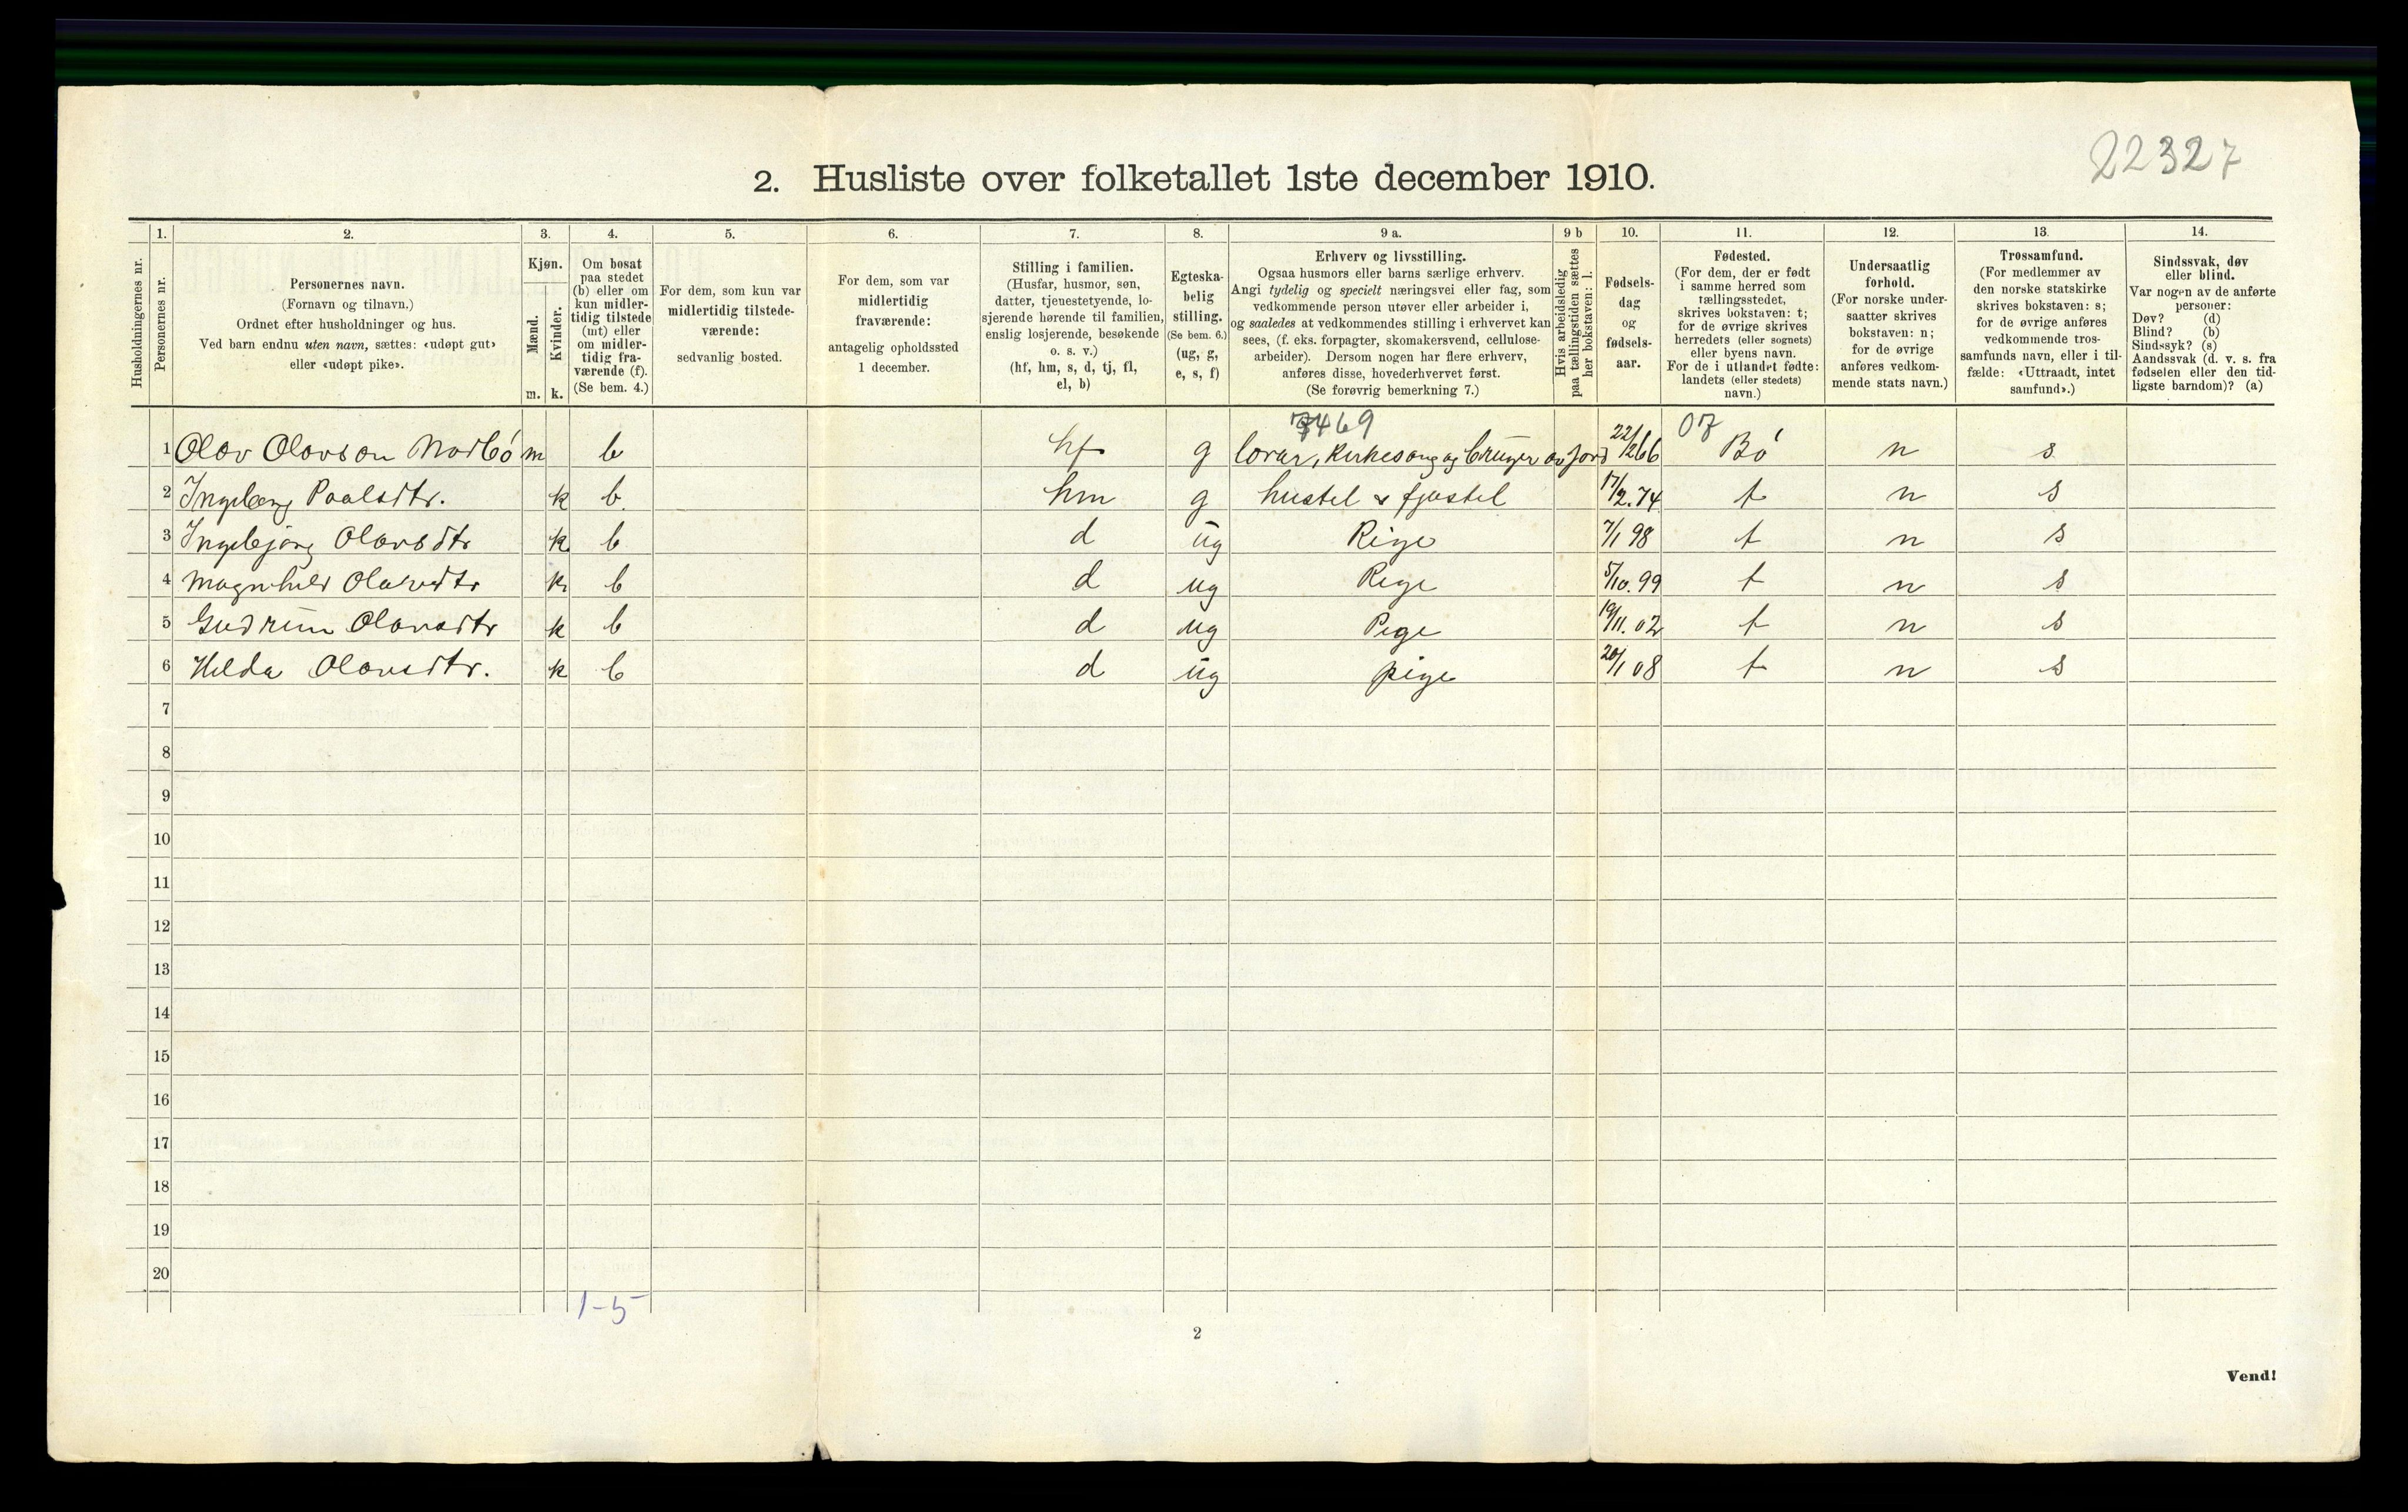 22327
2. Husliste over folketallet 1ste december 1910.
1. 2. 3. 4. 5. 6. 7. 8. 9 a. 9 b 10. 11. 12. 13. 14.
Husholdningernes nr.
Personernes nr.
Personernes navn.
(Fornavn og tilnavn.)
Ordnet efter husholdninger og hus.
Ved barn endnu uten navn, sættes: «udøpt gut»
eller «udøpt pike».
Kjøn.
Mænd.
Kvinder.
m. k.
Om bosat
paa stedet
(b) eller om
kun midler-
tidig tilstede
(mt) eller
om midler-
tidig fra-
værende (f).
(Se bem. 4.)
For dem, som kun var
midlertidig tilstede-
værende:
sedvanlig bosted.
For dem, som var
midlertidig
fraværende:
antagelig opholdssted
1 december.
Stilling i familien.
(Husfar, husmor, søn,
datter, tjenestetyende, lo-
sjerende hørende til familien,
enslig losjerende, besøkende
o. s. v.)
(hf, hm, s, d, tj, fl,
el, b)
Egteska-
belig
stilling.
(Se bem. 6.)
(ug, g,
e, s, f)
Erhverv og livsstilling.
Ogsaa husmors eller barns særlige erhverv.
Angi tydelig og specielt næringsvei eller fag, som
vedkommende person utøver eller arbeider i,
og saaledes at vedkommendes stilling i erhvervet kan
sees, (f. eks. forpagter, skomakersvend, cellulose-
arbeider). Dersom nogen har flere erhverv,
anføres disse, hovederhvervet først.
(Se forøvrig bemerkning 7.)
Hvis arbeidsledig
paa tællingstiden sættes
her bokstaven: l.
Fødsels-
dag
og
fødsels-
aar.
Fødested.
(For dem, der er født
i samme herred som
tællingsstedet,
skrives bokstaven: t;
for de øvrige skrives
herredets (eller sognets)
eller byens navn.
For de i utlandet fødte:
landets (eller stedets)
navn.)
Undersaatlig
forhold.
(For norske under-
saatter skrives
bokstaven: n;
for de øvrige
anføres vedkom-
mende stats navn.)
Trossamfund.
(For medlemmer av
den norske statskirke
skrives bokstaven: s;
for de øvrige anføres
vedkommende tros-
samfunds navn, eller i til-
fælde: «Uttraadt, intet
samfund».)
Sindssvak, døv
eller blind.
Var nogen av de anførte
personer:
Døv? (d)
Blind? (b)
Sindssyk? (s)
Aandssvak (d. v. s. fra
fødselen eller den tid-
ligste barndom)? (a)
7469 07
1 Olav Olavson Nordbó m b hf g lærar, Kirkesang og bruger av jord 22/2 66 Bó n s
2 Ingeborg Paalsdtr. k b. hm g hustel & fjøstel 17/2. 74 t n s
3 Ingebjørg Olavsdtr k b d ug Pige 7/1 98 t n s
4 Magnhild Olavsdtr k b d ug Pige 5/10. 99 t n s
5 Gudrun Olavsdtr k b d ug Pige 19/11. 02 t n s
6 Hilda Olavsdtr. k b d ug pige 20/1 08 t n s
7
8
9
10
11
12
13
14
15
16
17
18
19
20
1-5
2
Vend!